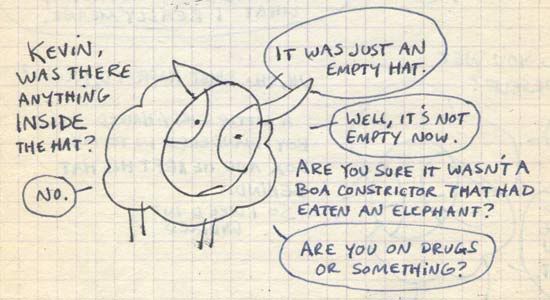 KEVIN,
WAS THERE
ANYTHING
INSIDE
THE HAT?
NO.
IT WAS JUST AN
EMPTY HAT.
WELL, IT'S NOT
EMPTY NOW.
ARE YOU SURE IT WASN'T A
BOA CONSTRICTOR THAT HAD
EATEN AN ELEPHANT?
ARE YOU ON DRUGS
OR SOMETHING?